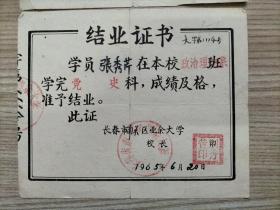 结业证书
学员张秀芹在本校政治理论班
学完党史科,成绩及格,
准予结业。
此证
长春市南关区业余大学
校长
1965年6月20日